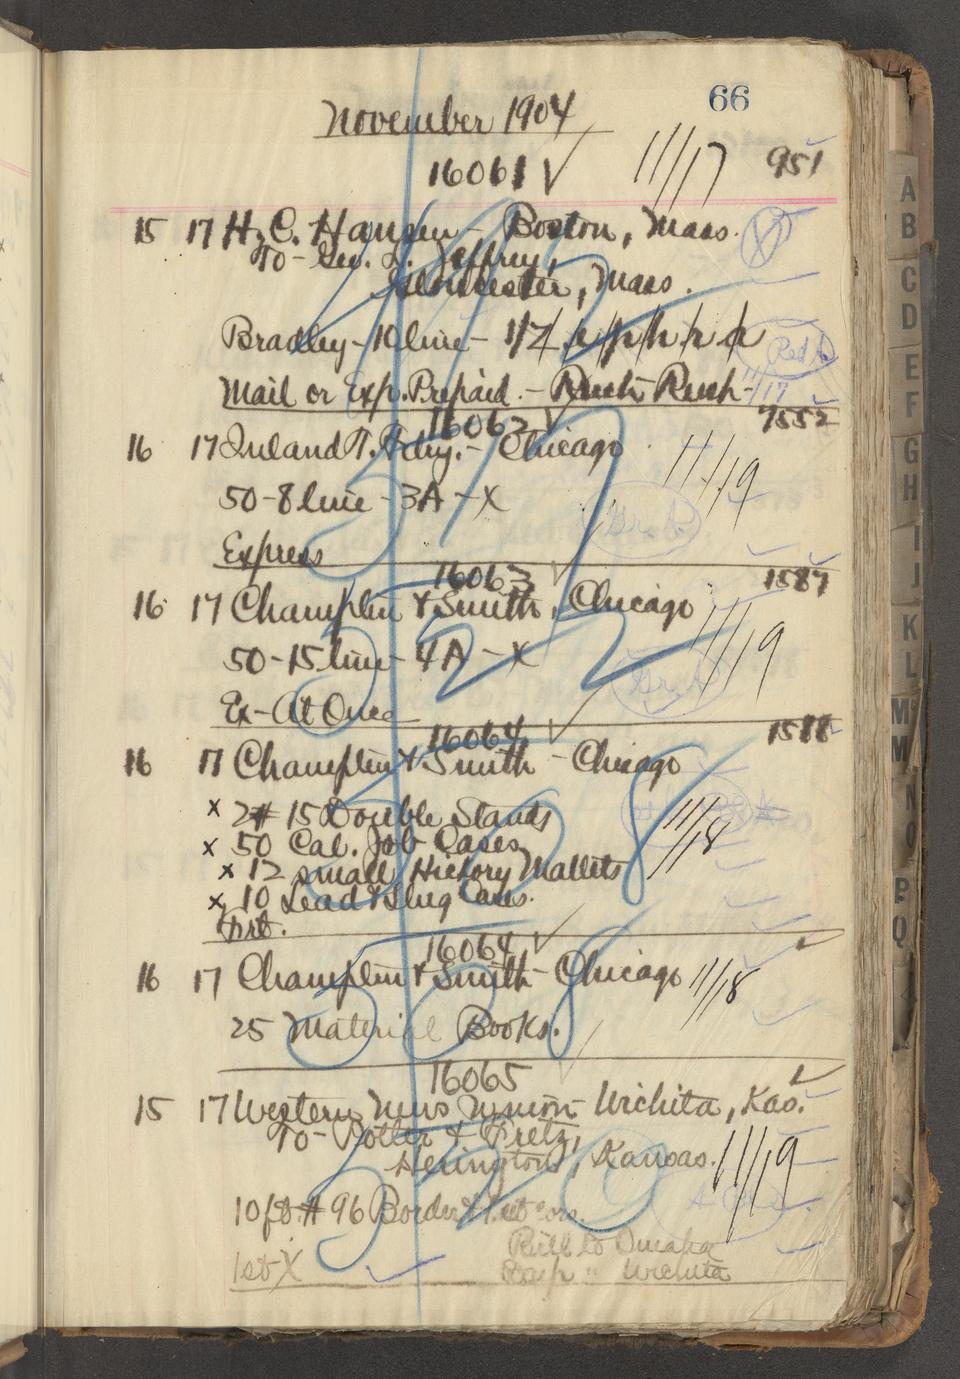 66
November 1904
16061 √ 11/17 951
15 17 H. C. Hansen - Boston, Mass.
To - Geo. Jeffrey,
Gloucester, Mass.
Bradley - 10 line -
Mail or Exp. Prepaid. - Rush Rush -
11/17
16062 √ 7552
16 17 Inland T. Fdry. - Chicago
11/19
50 - 8 line - 3A - X
Express
16063 √ 1587
16 17 Champlin & Smith, Chicago
11/19
50 - 15 line - 4A - X
Ex - At Once
16064 √ 1588
16 17 Champlin & Smith - Chicago
11/18
x 2 # 15 Double Stands
x 50 Cal. Job Cases
x 12 small Hickory Mallets
x 10 Lead & Slug Cases.
Frt.
16064 √
16 17 Champlin & Smith - Chicago 11/18
25 Material Books.
16065 √
15 17 Western News Union - Wichita, Kas.
To - Potter & Fretz,
Herington, Kansas. 11/19
10 ft. # 96 Border
Bill to Omaha
1st X " Wichita
A
B
C
D
E
F
G
H
I
J
K
L
M
M
N
O
P
Q